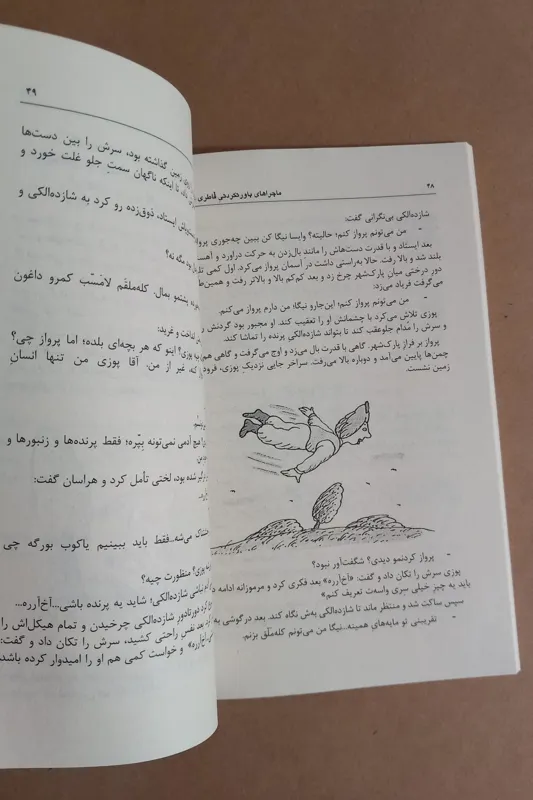 ۳۸
ماجراهای باورنکردنی قاطری
شازده‌الکی بی‌نگرانی گفت:
- من می‌تونم پرواز کنم؛ حالیته؟ وایسا نیگا کن ببین چه‌جوری پرواز
بعد ایستاد و با قدرت دست‌هاش را مانند بال‌زدن به حرکت درآورد و
بلند شد و بالا رفت. حالا به‌راستی داشت در آسمان پرواز می‌کرد. اول کمی
دور درختی میان پارک‌شهر چرخ زد و بعد کم‌کم بالا و بالاتر رفت و
می‌گفت فریاد می‌زد:
- من می‌تونم پرواز کنم؛ این‌جارو نیگا؛ من دارم پرواز می‌کنم.
پوزی تلاش می‌کرد با چشمانش او را تعقیب کند. او مجبور بود گردنش
و سرش را مدام جلوعقب کند تا بتواند شازده‌الکی پرنده را تماشا کند.
پرواز بر فراز پارک‌شهر. گاهی با قدرت بال می‌زد و اوج می‌گرفت و گاهی هم
چمن‌ها پایین می‌آمد و دوباره بالا می‌رفت. سرآخر جایی نزدیکِ پوزی، فرود
زمین نشست.
- پرواز کردنمو دیدی؟ شگفت‌آور نبود؟
پوزی سرش را تکان داد و گفت: «آخ‌آرره» بعد فکری کرد و مرموزانه ادامه
باید یه چیز خیلی سِری واسه‌ت تعریف کنم»
سپس ساکت شد و منتظر ماند تا شازده‌الکی به‌ش نگاه کند. بعد درگوشی به
- تقریبنی تو مایه‌های همینه..نیگا من می‌تونم کله‌مَلّق بزنم.
۳۹
گذاشته بود، سرش را بین دست‌ها
تا اینکه ناگهان سمتِ جلو غلت خورد و
ایستاد، ذوق‌زده رو کرد به شازده‌الکی و
مگه نه؟
پشتمو بمال. کله‌ملقَم لامَسّب کمرو داغون
و غرید:
پوزی؟ اینو که هر بچه‌ای بلده؛ اما پرواز چی؟
غیر از من. آقا پوزی من تنها انسانِ
هیچ آدمی نمی‌تونه بِپّره؛ فقط پرنده‌ها و زنبورها و
شده بود، لختی تأمل کرد و هراسان گفت:
می‌شه..فقط باید ببینیم یاکوب بورگه چی
پوزی؟ منظورت چیه؟
نباشی شازده‌الکی؛ شاید یه پرنده باشی...آخ‌آرره...
کرد دورتادور شازده‌الکی چرخیدن و تمام هیکل‌اش را
بعد نفس راحتی کشید، سرش را تکان داد و گفت:
آخ‌آرره» و خواست کمی هم او را امیدوار کرده باشد